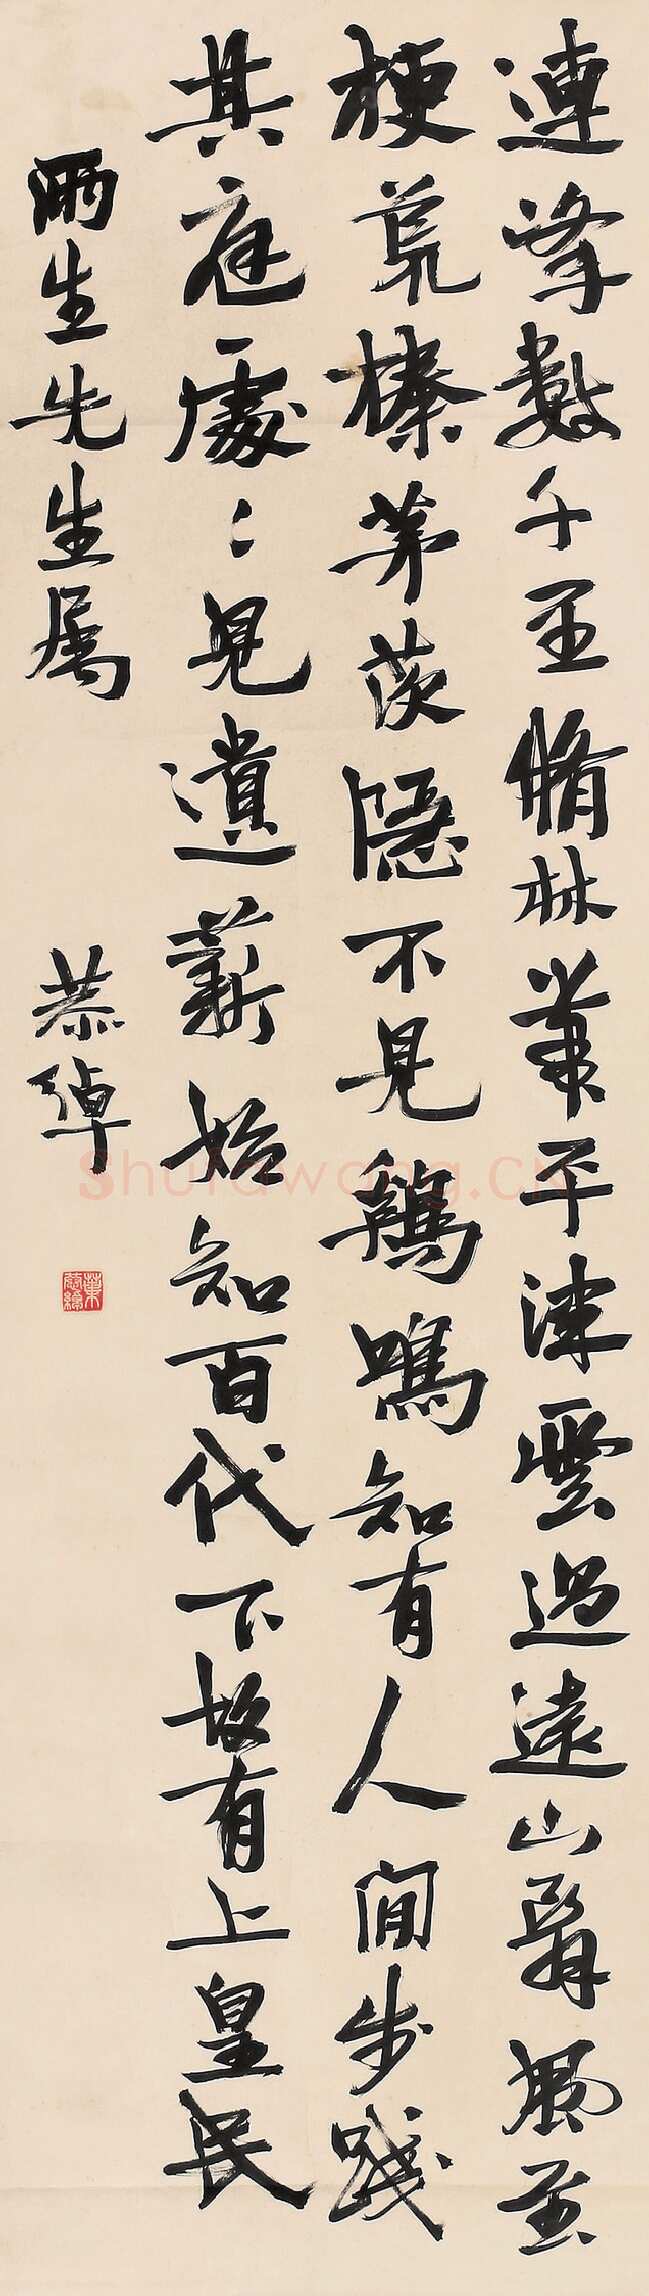 連峯數千里脩林帶平津雲過遠山翳風至
梗荒榛茅茨隱不見鷄鳴知有人閒步踐
其庭處〻見遺薪始知百代下故有上皇民
雨生先生属 恭綽
葉恭綽
Shufawang.CN